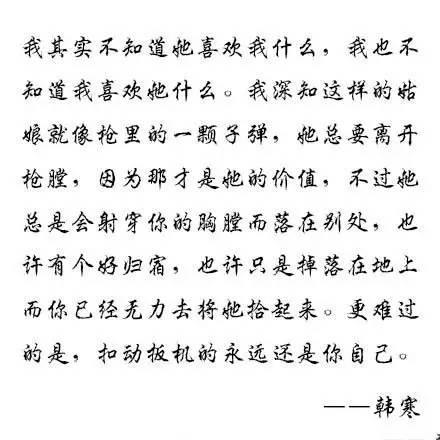 我其实不知道她喜欢我什么，我也不
知道我喜欢她什么。我深知这样的姑
娘就像枪里的一颗子弹，她总要离开
枪膛，因为那才是她的价值，不过她
总是会射穿你的胸膛而落在别处，也
许有个好归宿，也许只是掉落在地上
而你已经无力去将她拾起来。更难过
的是，扣动扳机的永远还是你自己。
——韩寒